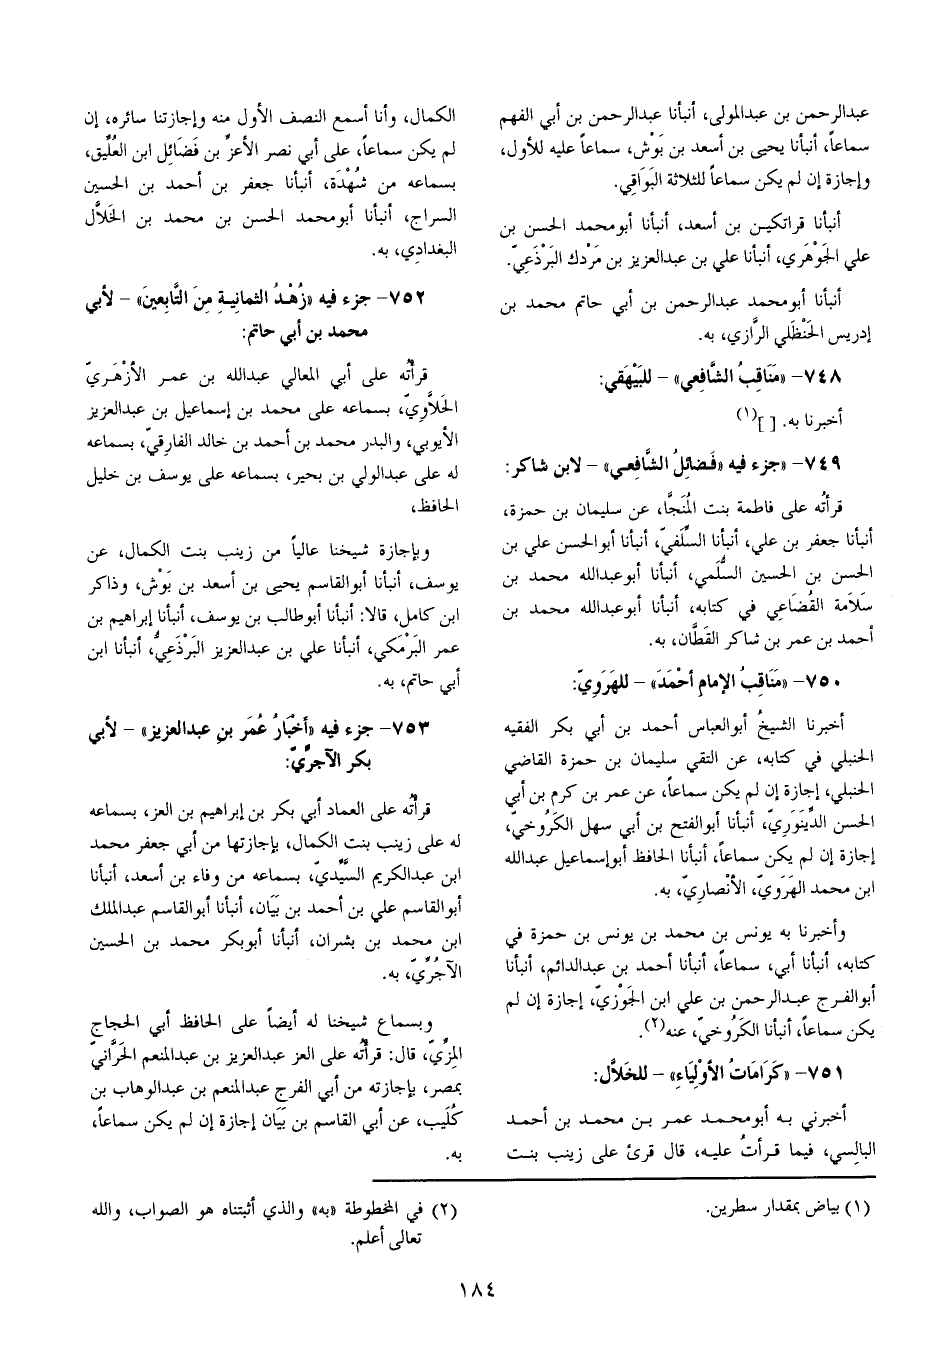 عبدالرحمن بن عبدالمولى، أنبأنا عبدالرحمن بن أبي الفهم
سماعاً، أنبأنا يحيى بن أسعد بن بَوْش، سماعاً عليه للأول،
وإجازة إن لم يكن سماعاً للثلاثة البَوَاقِي.
أنبأنا قراتكيـن بن أسعد، أنبأنا أبومحمد الحسن بن
علي الجَوْهَري، أنبأنا علي بن عبدالعزيز بن مَرْدك البَرْذَعيّ.
أنبأنا أبومحمد عبدالرحمن بن أبي حاتم محمد بن
إدريس الحَنْظَلي الرَّازي، به.
٧٤٨- «مَنَاقِبُ الشَّافعي» - للبَيْهَقي:
أخبرنا به. [ ](١)
٧٤٩- «جزء فيه «فَضائلُ الشَّافعي» - لابن شاكر:
قرأتُه على فاطمة بنت المُنَجَّا، عن سليمان بن حمزة،
أنبأنا جعفر بن علي، أنبأنا السِّلَفيّ، أنبأنا أبوالحسن علي بن
الحسن بن الحسين السُّلَمي، أنبأنا أبوعبدالله محمد بن
سَلَامة القُضَاعي في كتابه، أنبأنا أبوعبدالله محمد بن
أحمد بن عمر بن شاكر القَطَّان، به.
٧٥٠- «مَنَاقِبُ الإمامِ أحْمَدَ» - للهَرَويّ:
أخبرنا الشيخُ أبوالعباس أحمد بن أبي بكر الفقيه
الحنبلي في كتابه، عن التقي سليمان بن حمزة القاضي
الحنبلي، إجازة إن لم يكن سماعاً، عن عمر بن كرم بن أبي
الحسن الدِّينَوَرِيّ، أنبأنا أبوالفتح بن أبي سهل الكَرُوخيّ،
إجازة إن لم يكن سماعاً، أنبأنا الحافظ أبوإسماعيل عبدالله
ابن محمد الهَرَويّ، الأنْصاريّ، به.
وأخبرنا به يونس بن محمد بن يونس بن حمزة في
كتابه، أنبأنا أبي، سماعاً، أنبأنا أحمد بن عبدالدائم، أنبأنا
أبوالفـرج عبـدالرحمن بن علي ابن الجَوْزيّ، إجازة إن لم
يكن سماعاً، أنبأنا الكَرُوخيّ، عنه(٢).
٧٥١- «كَرَامَاتُ الأوْلِيَاءِ» - للخَلاَّل:
أخبرني بـه أبومحـمـد عمـر بـن محمـد بـن أحمـد
البالِسي، فيما قـرأتُ عليـه، قال قرئ على زينب بنـت
الكمال، وأنا أسمع النصف الأول منه وإجازتنا سائره، إن
لم يكن سماعاً، على أبي نصر الأعزِّ بن فَضَائل ابن العُلِّيق،
بسماعه من شُهْدَة، أنبأنا جعفر بن أحمد بن الحسين
السراج، أنبأنا أبومحمد الحسن بن محمد بن الخَلاَّل
البغدادِي، به.
٧٥٢- جزء فيه «زُهْدُ الثمانيةِ مِنَ التَّابعينَ» - لأبي
محمد بن أبي حاتم:
قرأتُه على أبي المعالي عبدالله بن عمر الأزْهَـريّ
الحَلاَّوِيّ، بسماعه على محمد بن إسماعيل بن عبدالعزيز
الأيوبي، والبدر محمد بن أحمد بن خالد الفارقيّ، بسماعه
له على عبدالولي بن بحير، بسماعه على يوسف بن خليل
الحافظ،
وبإجازة شيخنا عالياً من زينب بنت الكمال، عن
يوسف، أنبأنا أبوالقاسم يحيى بن أسعد بن بَوْش، وذاكر
ابن كامل، قالا: أنبأنا أبوطالب بن يوسف، أنبأنا إبراهيم بن
عمر البَرْمَكي، أنبأنا علي بن عبدالعزيز البَرْذَعيُّ، أنبأنا ابن
أبي حاتم، به.
٧٥٣- جزء فيه «أخْبَارُ عُمَر بنِ عبدالعزيز» - لأبي
بكر الآجرِّيّ:
قرأتُه على العماد أبي بكر بن إبراهيم بن العز، بسماعه
له على زينب بنت الكمال، بإجازتها من أبي جعفر محمد
ابن عبدالكريم السَّيِّديّ، بسماعه من وفاء بن أسعد، أنبأنا
أبوالقاسم علي بن أحمد بن بَيَان، أنبأنا أبوالقاسم عبدالملك
ابن محمد بن بشران، أنبأنا أبوبكر محمد بن الحسين
الآجُرِّيّ، به.
وبسماع شيخنا له أيضاً على الحافظ أبي الحجاج
المِزِّيّ، قال: قرأتُه على العز عبدالعزيز بن عبدالمنعم الحَرَّانيّ
بمصر، بإجازته من أبي الفرج عبدالمنعم بن عبدالوهاب بن
كُلَيب، عن أبي القاسم بن بَيَان إجازة إن لم يكن سماعاً،
به.
(١) بياض بمقدار سطرين.
(٢) في المخطوطة «به» والذي أثبتناه هو الصواب، والله
تعالى أعلم.
١٨٤